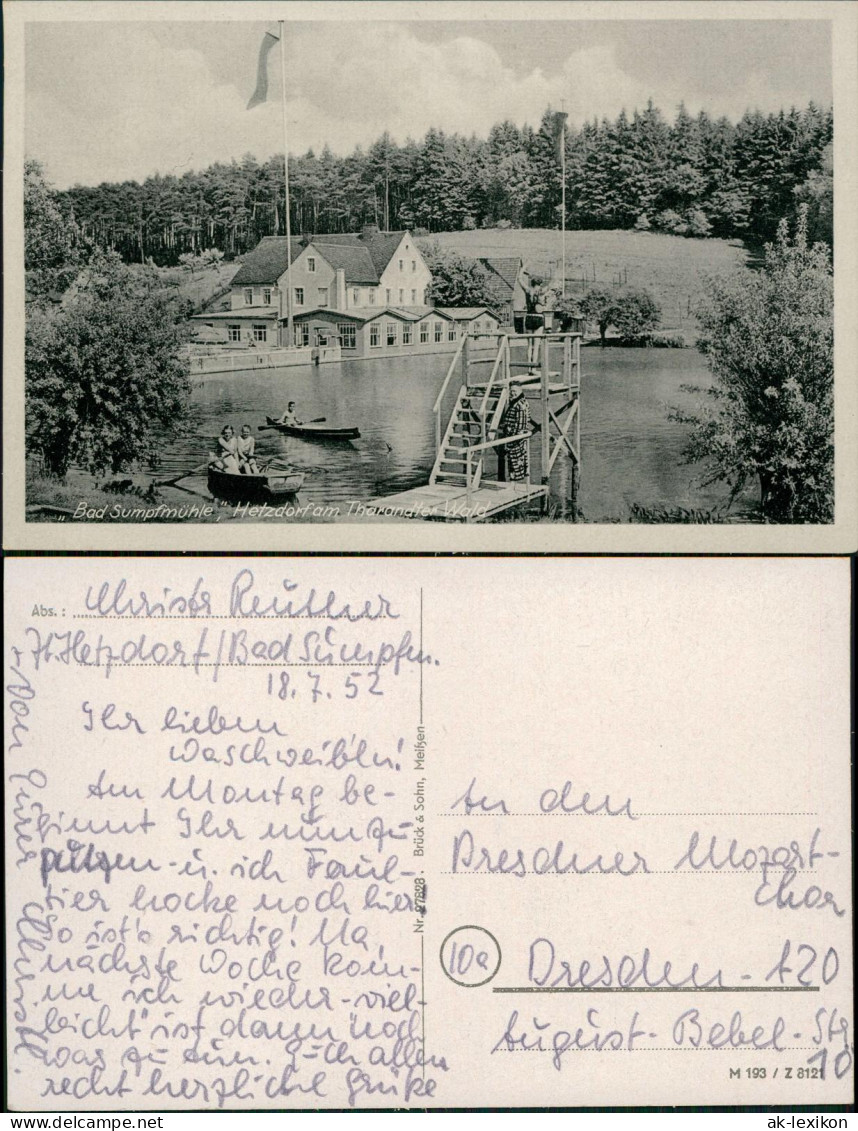 „Bad Sumpfmühle", Hetzdorf am Tharandter Wald
Abs.: Christa Reuther
Hetzdorf/Bad Sumpfm.
18.7.52
Ihr lieben
Waschweibln!
Am Montag be-
ginnt Ihr nun zu
putzen - u. ich Faul-
tier hocke noch hier
So ist's richtig! Na,
nächste Woche kom-
me ich wieder - viel-
leicht ist dann noch
was zu tun. Euch allen
recht herzliche Grüße
von Eurer
Nr. 27828 · Brück & Sohn, Meißen
An den
Dresdner Mozart-
chor
10a
Dresden - A20
August-Bebel-Str
10
M 193 / Z 8121
© ak-ansichtskarten.de
ak-lexikon